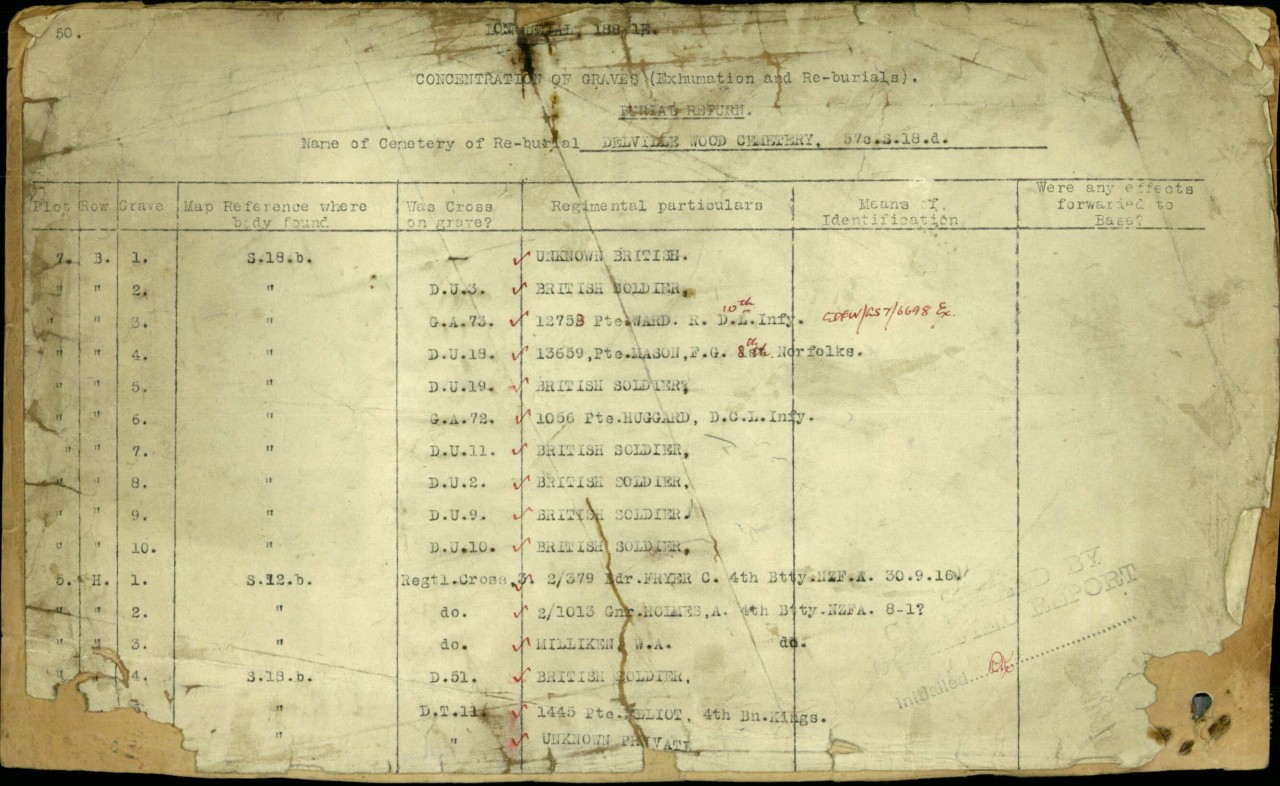 50.
CONCENTRATION OF GRAVES (Exhumation and Re-burials).
BURIAL RETURN.
Name of Cemetery of Re-burial DELVILLE WOOD CEMETERY, 57c.S.18.d.
Plot Row Grave Map Reference where body found Was Cross on grave? Regimental particulars Means of Identification Were any effects forwarded to Base?
7. B. 1. S.18.b. — ✓ UNKNOWN BRITISH.
" " 2. " D.U.3. ✓ BRITISH SOLDIER,
10th
" " 3. " G.A.73. ✓ 12753 Pte.WARD. R. D.L.Infy.
" " 4. " D.U.18. ✓ 13659,Pte.MASON,F.G. 8th. Norfolks.
" " 5. " D.U.19. ✓ BRITISH SOLDIER,
" " 6. " G.A.72. ✓ 1056 Pte.HUGGARD, D.C.L.Infy.
" " 7. " D.U.11. ✓ BRITISH SOLDIER,
" " 8. " D.U.2. ✓ BRITISH SOLDIER,
" " 9. " D.U.9. ✓ BRITISH SOLDIER.
" " 10. " D.U.10. ✓ BRITISH SOLDIER,
5. H. 1. S.12.b. Regtl.Cross 2/379 FRYER C. 4th Btty.NZF.A. 30.9.16
" " 2. " do. ✓ 2/1013 Gnr.HOLMES,A. 4th Btty.NZFA. 8-1?
" " 3. " do. ✓ MILLIKEN, W.A. do.
4. S.18.b. D.51. ✓ BRITISH SOLDIER,
" D.T.11. ✓ 1445 Pte. 4th Bn.Kings.
" " ✓ UNKNOWN PRIVATE
BY
REPORT
Initialed